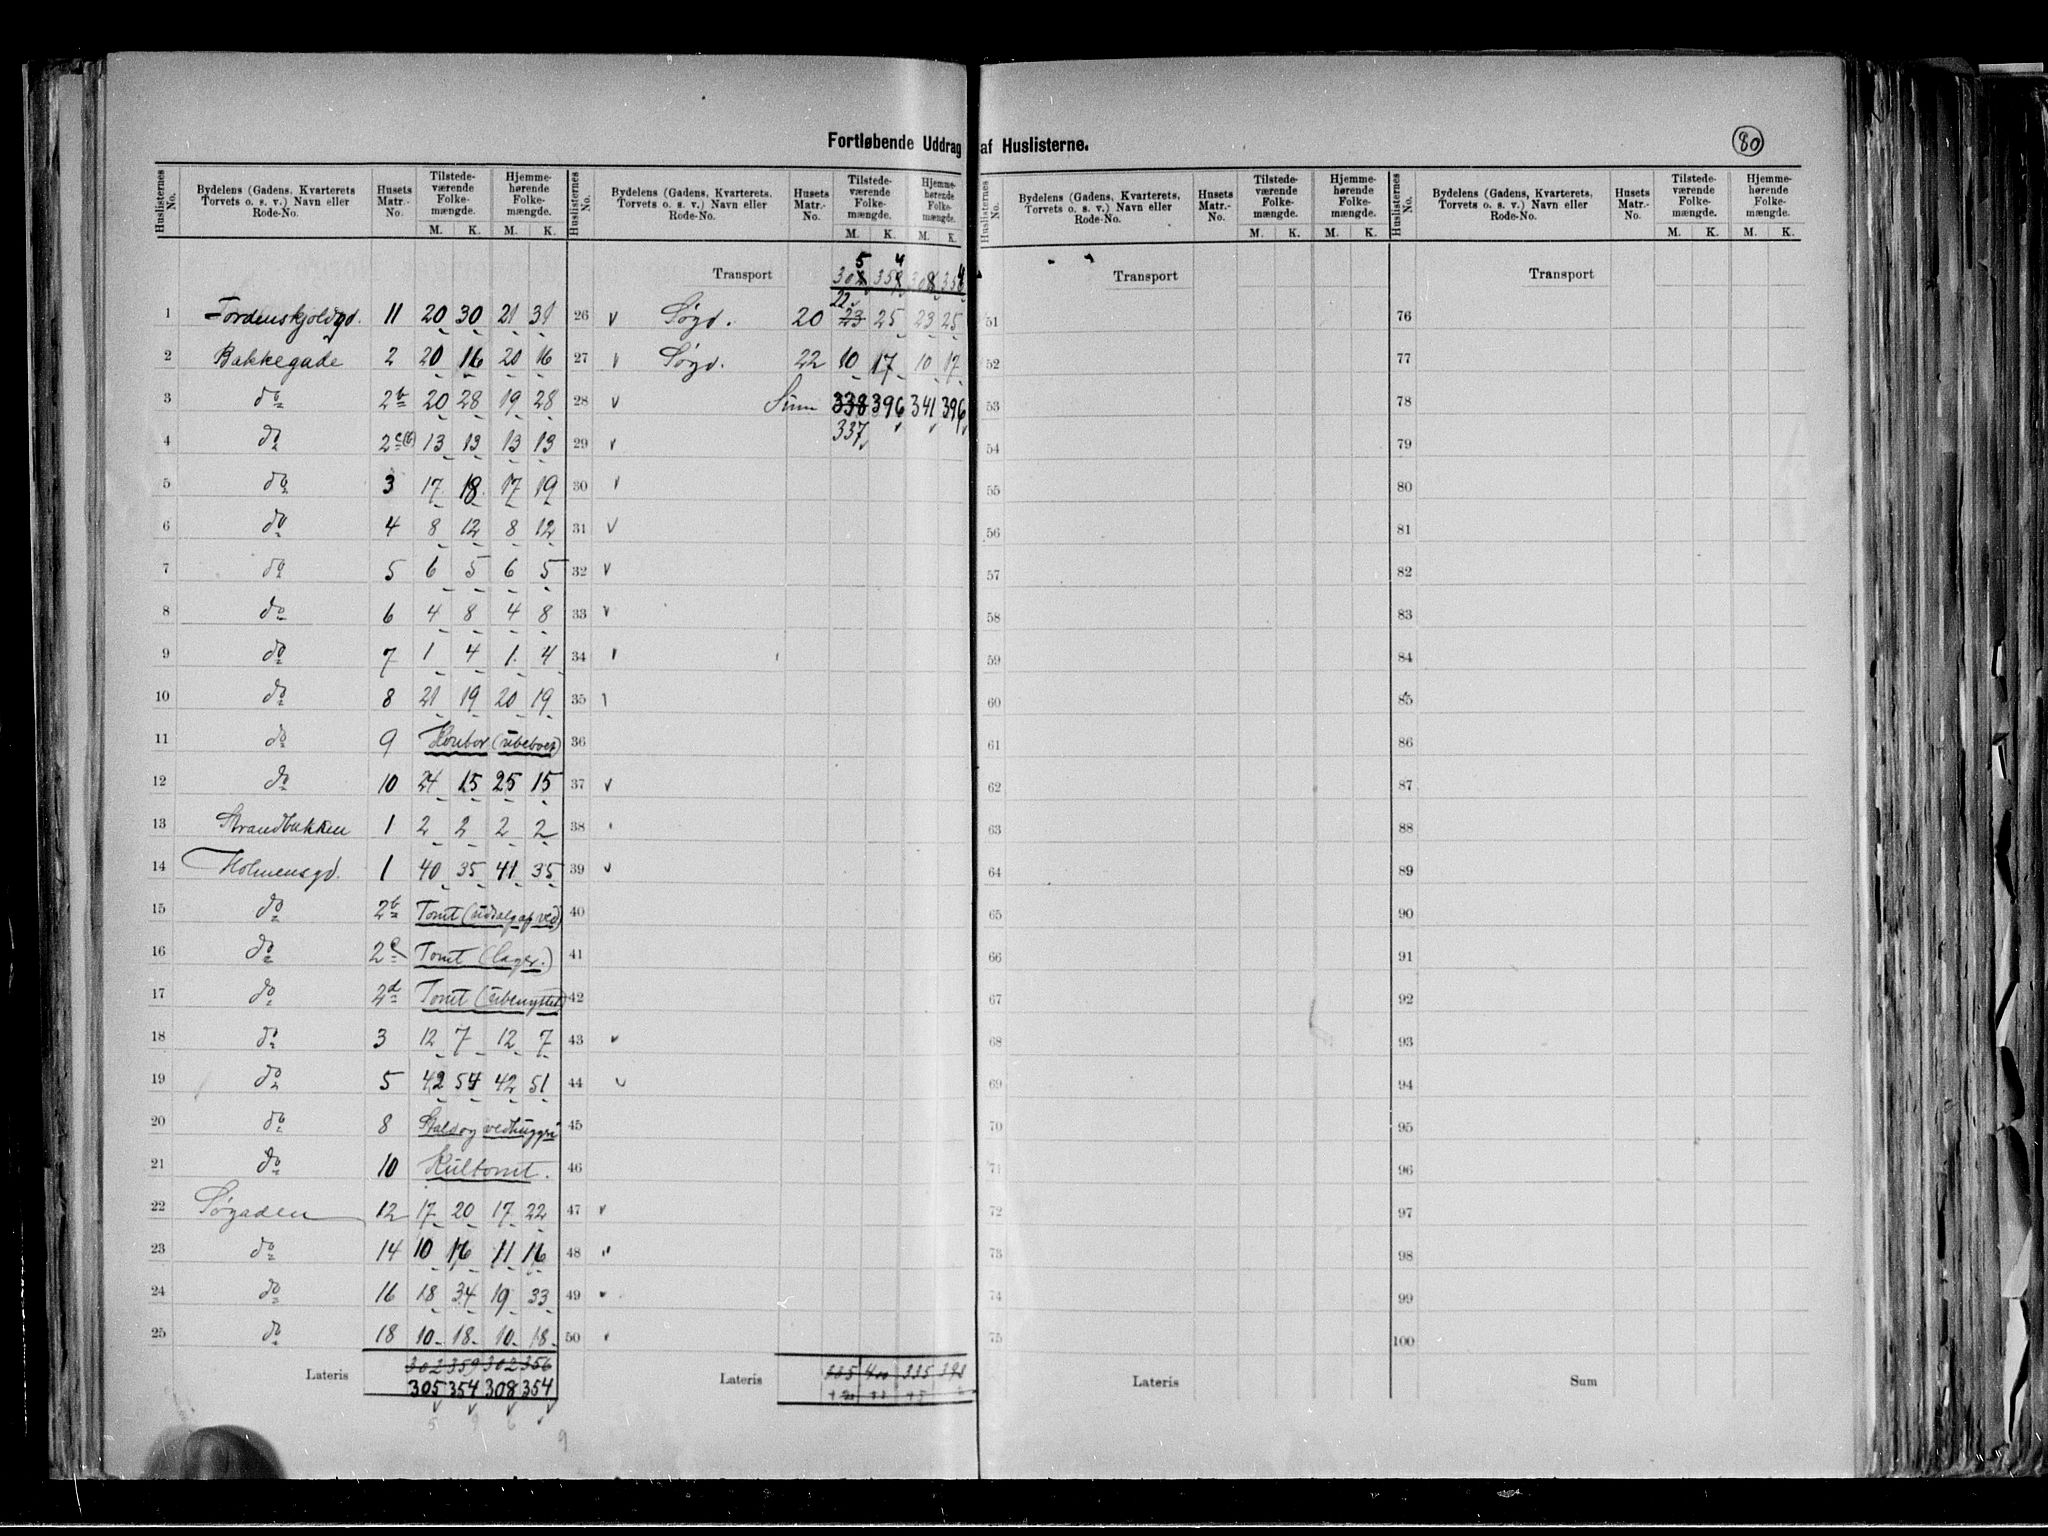 Fortløbende Uddrag af Huslisterne.
80
Huslisternes No. Bydelens (Gadens, Kvarterets Torvets o. s. v.) Navn eller Rode-No. Husets Matr.-No. Tilstede-værende Folke-mængde. M. K. Hjemme-hørende Folke-mængde. M. K.
1 Tordenskjoldgd. 11 20 30 21 31
2 Bakkegade 2 20 16 20 16
3 do 2b 20 28 19 28
4 do 2c(b) 13 13 13 13
5 do 3 17 18 17 19
6 do 4 8 12 8 12
7 do 5 6 5 6 5
8 do 6 4 8 4 8
9 do 7 1 4 1 4
10 do 8 21 19 20 19
11 do 9 (ubeboet)
12 do 10 24 15 25 15
13 Strandbakken 1 2 2 2 2
14 Holmensgd. 1 40 35 41 35
15 do 2b Tomt (udsalg af ved)
16 do 2c Tomt (lager.)
17 do 2d Tomt (ubenyttet)
18 do 3 12 7 12 7
19 do 5 42 54 42 51
20 do 8 Stald og vedhuggeri
21 do 10 Kultomt.
22 Søgaden 12 17 20 17 22
23 do 14 10 16 11 16
24 do 16 18 34 19 33
25 do 18 10 18 10 18
Lateris 302 359 302 356
305 354 308 354
Huslisternes No. Bydelens (Gadens, Kvarterets. Torvets o. s. v.) Navn eller Rode-No. Husets Matr.-No. Tilstede-værende Folke-mængde. M. K. Hjemme-hørende Folke-mængde. M. K.
Transport 305 354 308 354
22
26 Søgd. 20 23 25 23 25
27 Søgd. 22 10 17 10 17
28 Sum 338 396 341 396
29 337
30
31
32
33
34
35
36
37
38
39
40
41
42
43
44
45
46
47
48
49
50
Lateris 335 400 335 398
Huslisternes No. Bydelens (Gadens, Kvarterets, Torvets o. s. v.) Navn eller Rode-No. Husets Matr.-No. Tilstede-værende Folke-mængde. M. K. Hjemme-hørende Folke-mængde. M. K.
Transport
51
52
53
54
55
56
57
58
59
60
61
62
63
64
65
66
67
68
69
70
71
72
73
74
75
Lateris
Huslisternes No. Bydelens (Gadens, Kvarterets, Torvets o. s. v.) Navn eller Rode-No. Husets Matr.-No. Tilstede-værende Folke-mængde. M. K. Hjemme-hørende Folke-mængde. M. K.
Transport
76
77
78
79
80
81
82
83
84
85
86
87
88
89
90
91
92
93
94
95
96
97
98
99
100
Sum